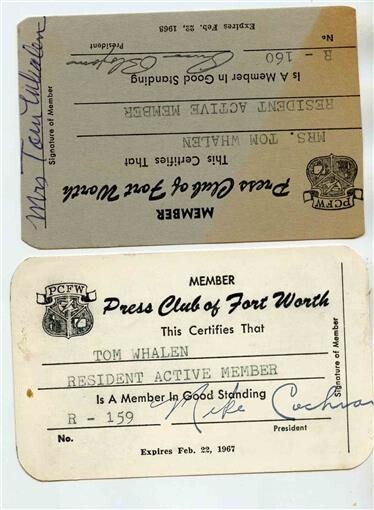 MEMBER
PCFW
Press Club of Fort Worth
This Certifies That
MRS. TOM WHALEN
RESIDENT ACTIVE MEMBER
Is A Member In Good Standing
R - 160
No.
President
Expires Feb. 22, 1968
Mrs Tom Whalen
Signature of Member
MEMBER
PCFW
Press Club of Fort Worth
This Certifies That
TOM WHALEN
RESIDENT ACTIVE MEMBER
Is A Member In Good Standing
R - 159
Mike Cochran
No.
President
Expires Feb. 22, 1967
Signature of Member